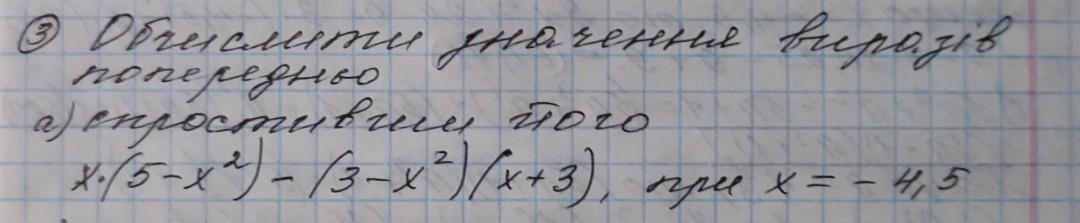 ③ Обчислити значення виразів
попередньо
а) спростивши його
x·(5-x²)-(3-x²)(x+3), при x=-4,5